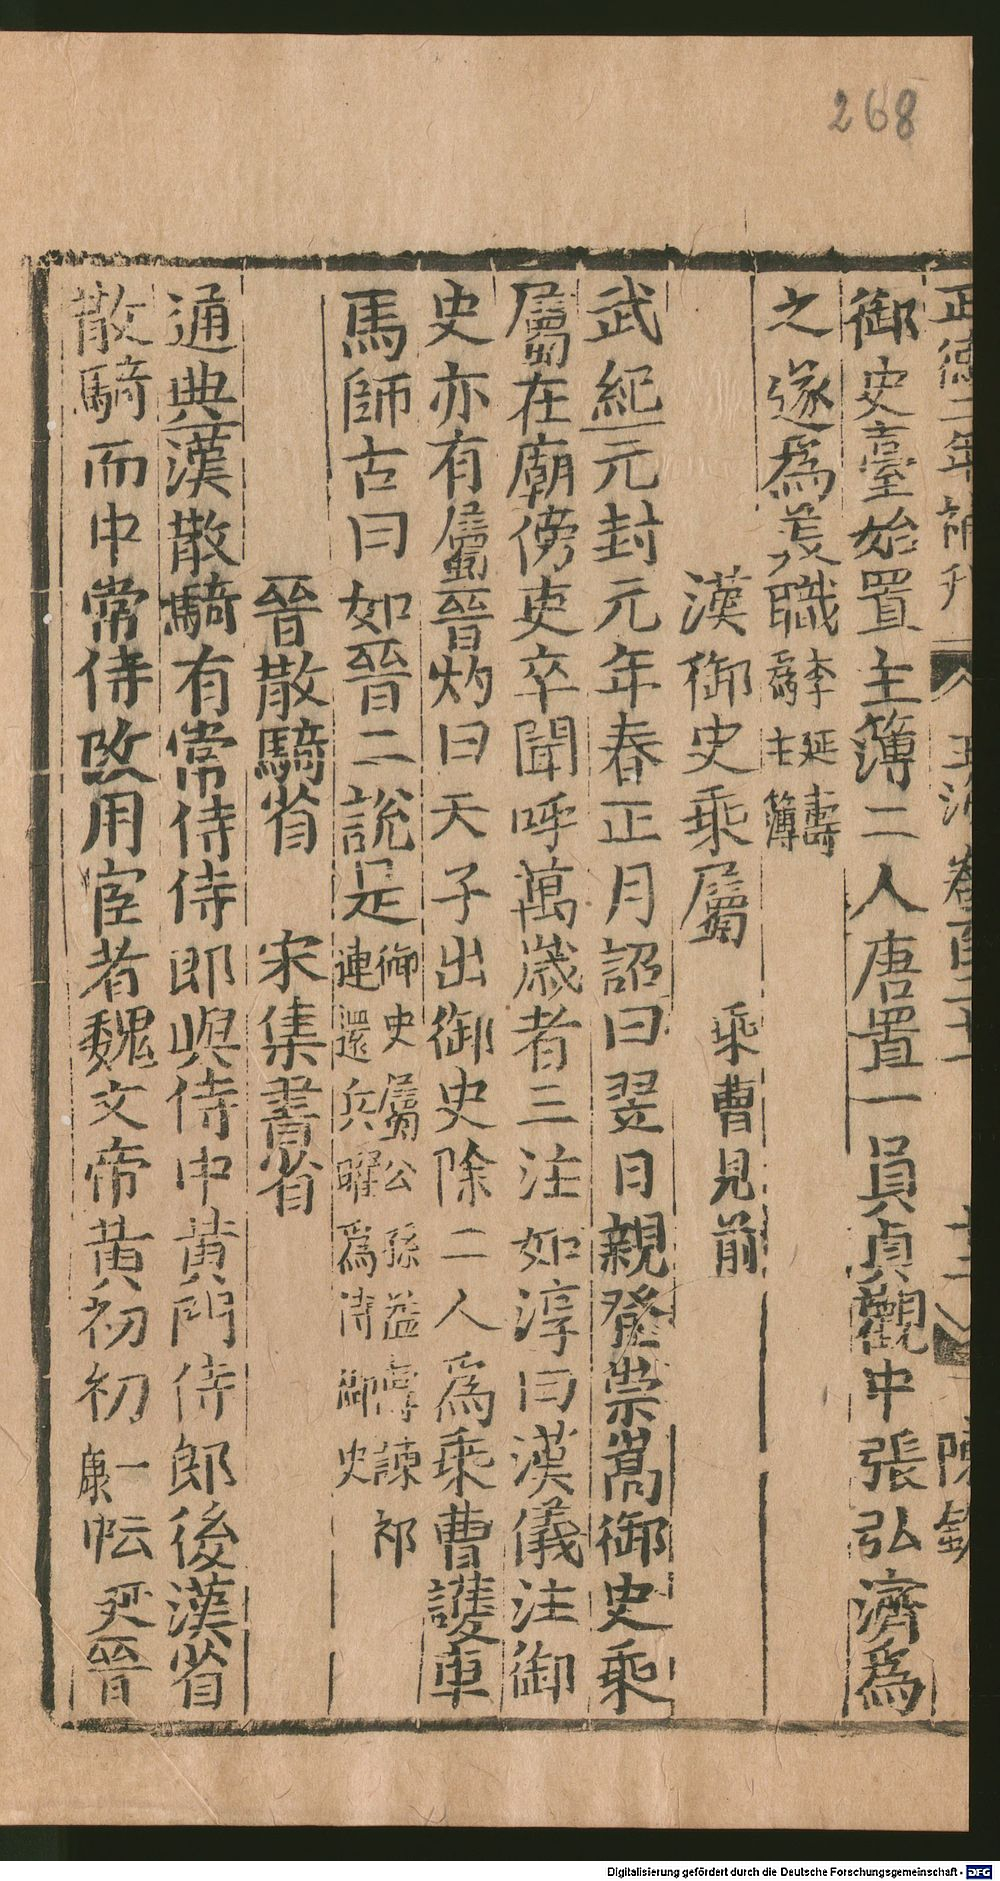 268
正德二年補刊
御史臺始置主簿二人唐置一員貞觀中張弘濟爲
之遂爲美職李延壽爲主簿
漢御史乘屬 乘曹見前
武紀元封元年春正月詔曰翌日親登崇嵩御史乘
屬在廟傍吏卒聞呼萬歲者三注如淳曰漢儀注御
史亦有屬晉灼曰天子出御史除二人爲乘曹護車
馬師古曰如晉二說是御史屬公孫益壽諫祁連還兵曜爲侍御史
晉散騎省 宋集書省
通典漢散騎有常侍侍郎與侍中黃門侍郎後漢省
散騎而中常侍改用宦者魏文帝黃初初一康帢延晉
Digitalisierung gefördert durch die Deutsche Forschungsgemeinschaft - DFG